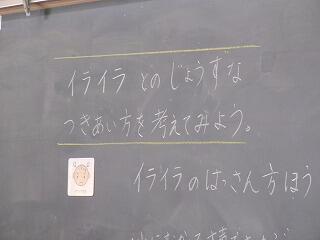 イライラ とのじょうずな
つきあい方を考えてみよう。
イライラのはっさん方ほう